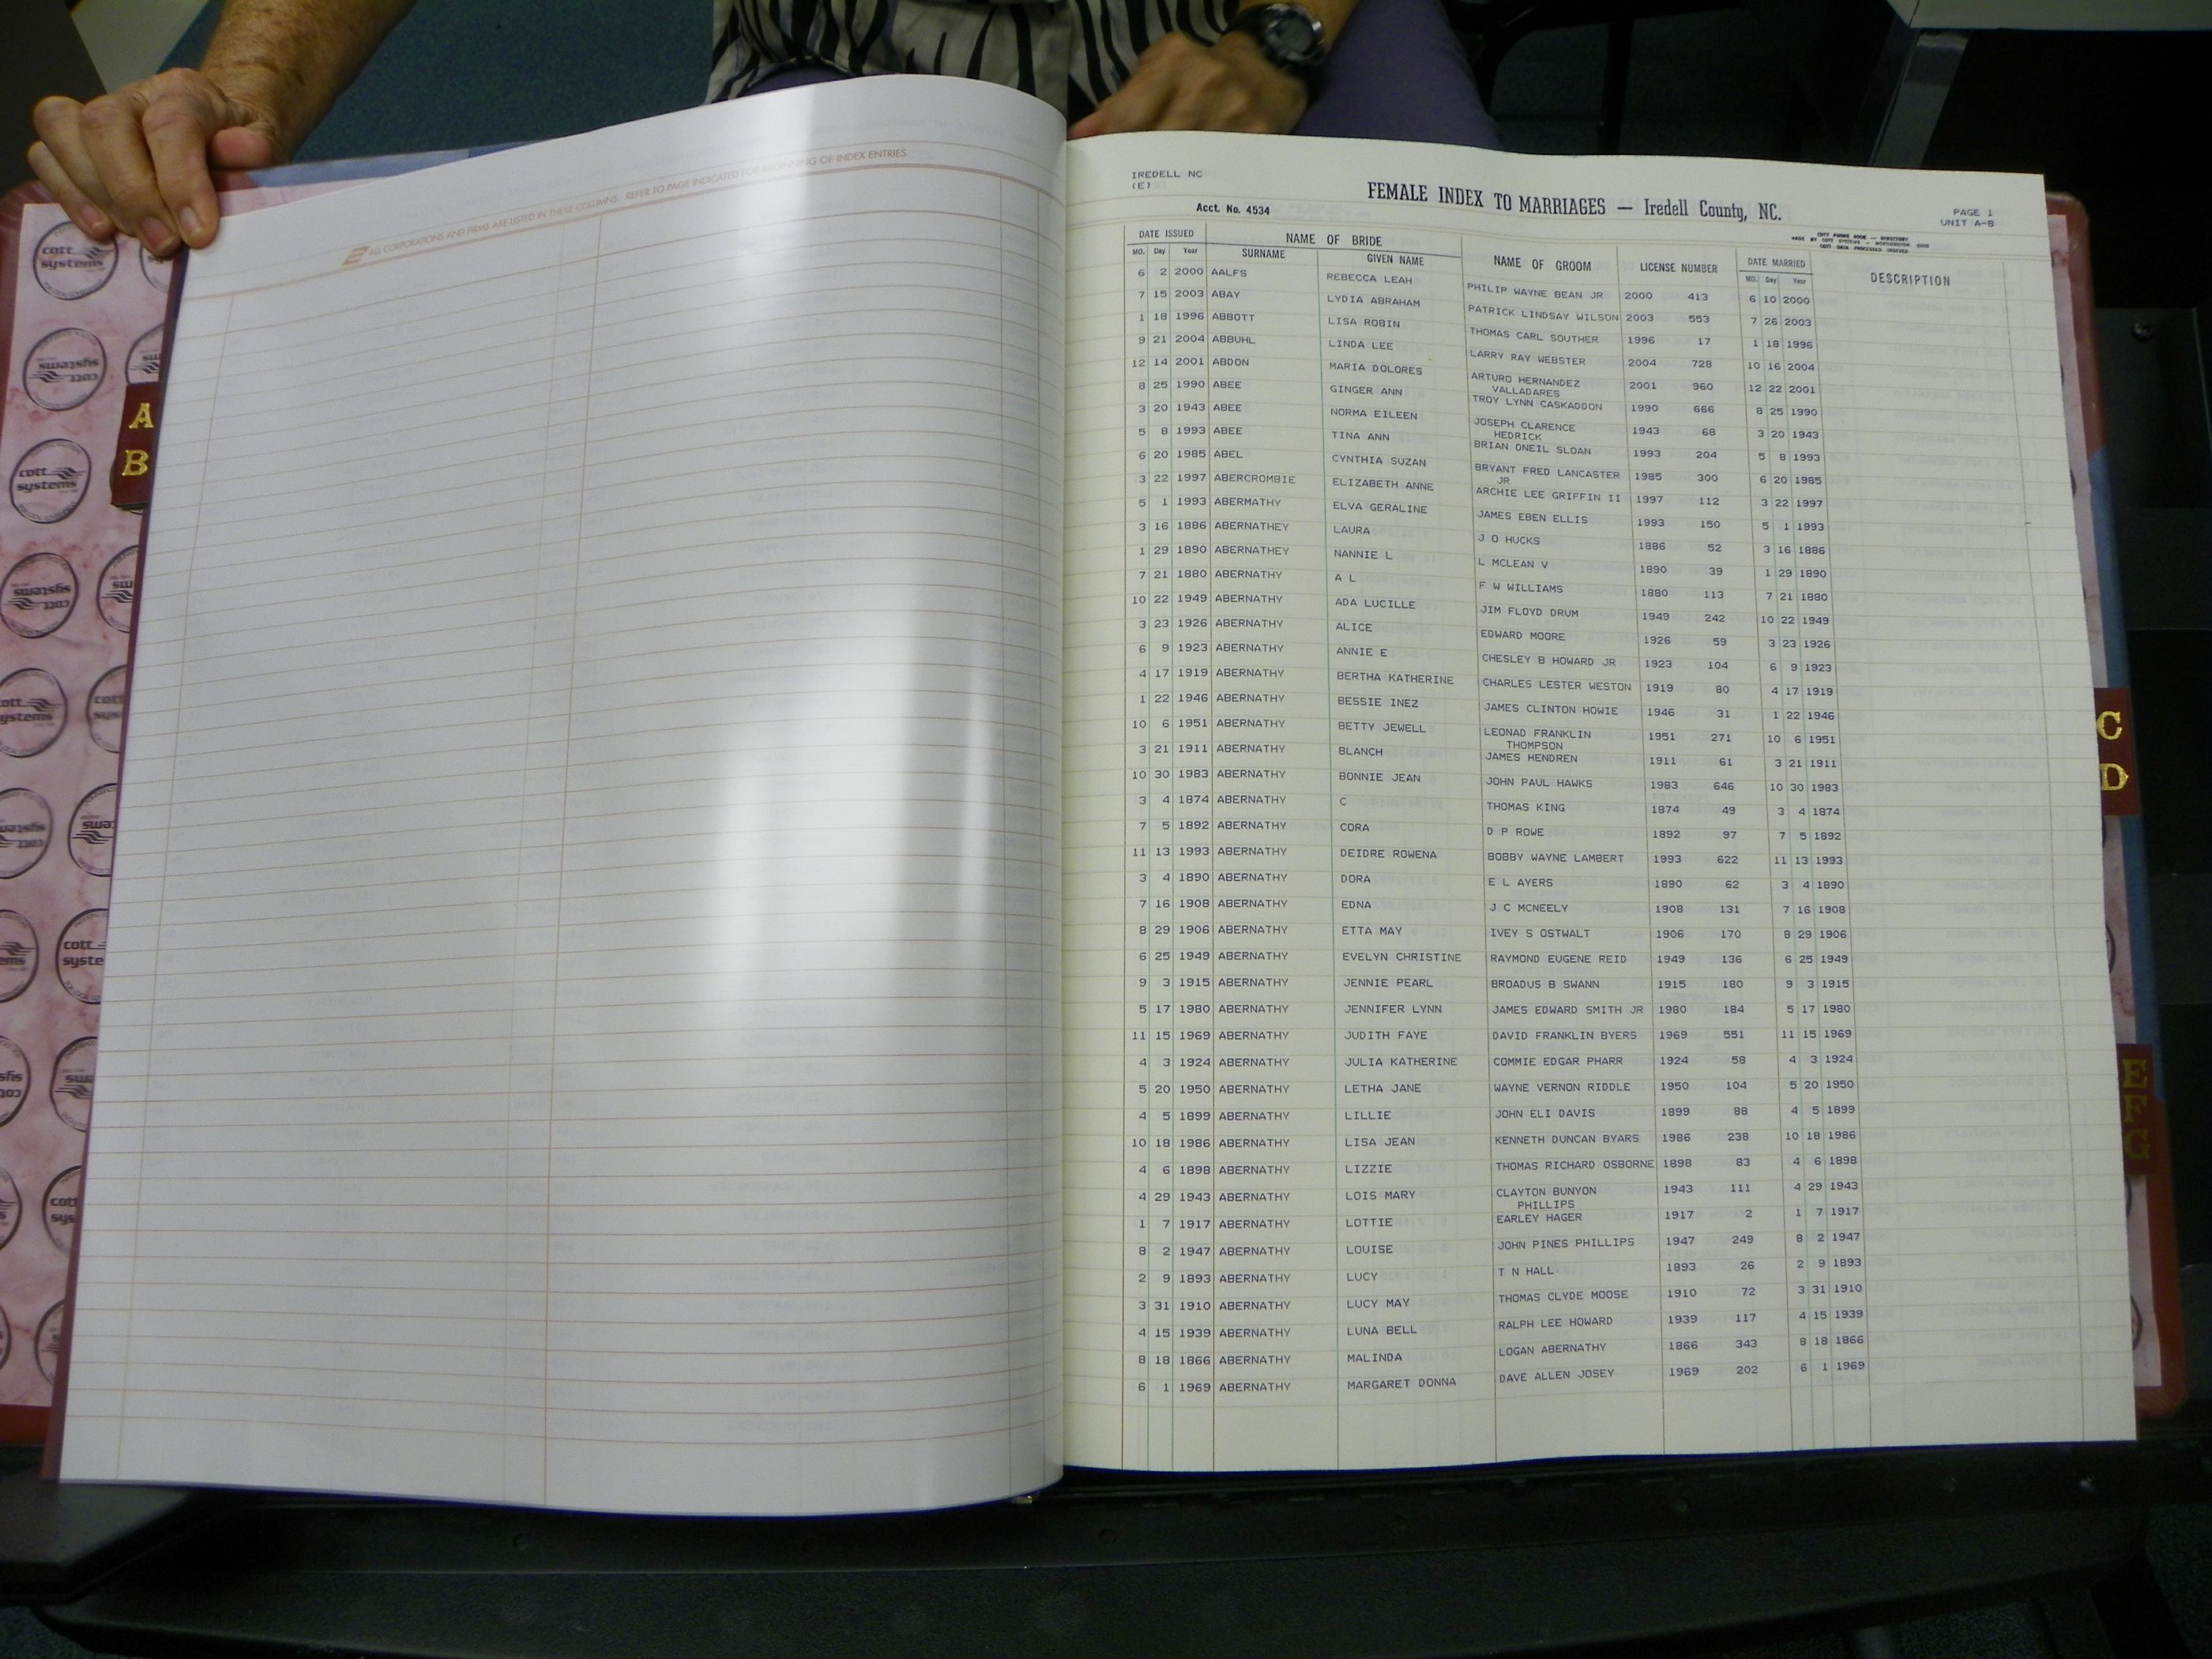 ALL CORPORATIONS AND FIRMS ARE LISTED IN THESE COLUMNS. REFER TO PAGE INDICATED FOR BEGINNING OF INDEX ENTRIES
cott systems
A
B
C
D
E
F
G
IREDELL NC
(E)
Acct. No. 4534
FEMALE INDEX TO MARRIAGES — Iredell County, NC.
PAGE 1
UNIT A-B
DATE ISSUED NAME OF BRIDE NAME OF GROOM LICENSE NUMBER DATE MARRIED DESCRIPTION
MO. Day Year SURNAME GIVEN NAME MO. Day Year
6 2 2000 AALFS REBECCA LEAH PHILIP WAYNE BEAN JR 2000 413 6 10 2000
7 15 2003 ABAY LYDIA ABRAHAM PATRICK LINDSAY WILSON 2003 553 7 26 2003
1 18 1996 ABBOTT LISA ROBIN THOMAS CARL SOUTHER 1996 17 1 18 1996
9 21 2004 ABBUHL LINDA LEE LARRY RAY WEBSTER 2004 728 10 16 2004
12 14 2001 ABDON MARIA DOLORES ARTURO HERNANDEZ 2001 960 12 22 2001
VALLADARES
8 25 1990 ABEE GINGER ANN TROY LYNN CASKADDON 1990 666 8 25 1990
3 20 1943 ABEE NORMA EILEEN JOSEPH CLARENCE 1943 68 3 20 1943
HEDRICK
5 8 1993 ABEE TINA ANN BRIAN ONEIL SLOAN 1993 204 5 8 1993
6 20 1985 ABEL CYNTHIA SUZAN BRYANT FRED LANCASTER 1985 300 6 20 1985
JR
3 22 1997 ABERCROMBIE ELIZABETH ANNE ARCHIE LEE GRIFFIN II 1997 112 3 22 1997
5 1 1993 ABERMATHY ELVA GERALINE JAMES EBEN ELLIS 1993 150 5 1 1993
3 16 1886 ABERNATHEY LAURA J O HUCKS 1886 52 3 16 1886
1 29 1890 ABERNATHEY NANNIE L L MCLEAN V 1890 39 1 29 1890
7 21 1880 ABERNATHY A L F W WILLIAMS 1880 113 7 21 1880
10 22 1949 ABERNATHY ADA LUCILLE JIM FLOYD DRUM 1949 242 10 22 1949
3 23 1926 ABERNATHY ALICE EDWARD MOORE 1926 59 3 23 1926
6 9 1923 ABERNATHY ANNIE E CHESLEY B HOWARD JR 1923 104 6 9 1923
4 17 1919 ABERNATHY BERTHA KATHERINE CHARLES LESTER WESTON 1919 80 4 17 1919
1 22 1946 ABERNATHY BESSIE INEZ JAMES CLINTON HOWIE 1946 31 1 22 1946
10 6 1951 ABERNATHY BETTY JEWELL LEONAD FRANKLIN 1951 271 10 6 1951
THOMPSON
3 21 1911 ABERNATHY BLANCH JAMES HENDREN 1911 61 3 21 1911
10 30 1983 ABERNATHY BONNIE JEAN JOHN PAUL HAWKS 1983 646 10 30 1983
3 4 1874 ABERNATHY C THOMAS KING 1874 49 3 4 1874
7 5 1892 ABERNATHY CORA D P ROWE 1892 97 7 5 1892
11 13 1993 ABERNATHY DEIDRE ROWENA BOBBY WAYNE LAMBERT 1993 622 11 13 1993
3 4 1890 ABERNATHY DORA E L AYERS 1890 62 3 4 1890
7 16 1908 ABERNATHY EDNA J C MCNEELY 1908 131 7 16 1908
8 29 1906 ABERNATHY ETTA MAY IVEY S OSTWALT 1906 170 8 29 1906
6 25 1949 ABERNATHY EVELYN CHRISTINE RAYMOND EUGENE REID 1949 136 6 25 1949
9 3 1915 ABERNATHY JENNIE PEARL BROADUS B SWANN 1915 180 9 3 1915
5 17 1980 ABERNATHY JENNIFER LYNN JAMES EDWARD SMITH JR 1980 184 5 17 1980
11 15 1969 ABERNATHY JUDITH FAYE DAVID FRANKLIN BYERS 1969 551 11 15 1969
4 3 1924 ABERNATHY JULIA KATHERINE COMMIE EDGAR PHARR 1924 58 4 3 1924
5 20 1950 ABERNATHY LETHA JANE WAYNE VERNON RIDDLE 1950 104 5 20 1950
4 5 1899 ABERNATHY LILLIE JOHN ELI DAVIS 1899 88 4 5 1899
10 18 1986 ABERNATHY LISA JEAN KENNETH DUNCAN BYARS 1986 238 10 18 1986
4 6 1898 ABERNATHY LIZZIE THOMAS RICHARD OSBORNE 1898 83 4 6 1898
4 29 1943 ABERNATHY LOIS MARY CLAYTON BUNYON 1943 111 4 29 1943
PHILLIPS
1 7 1917 ABERNATHY LOTTIE EARLEY HAGER 1917 2 1 7 1917
8 2 1947 ABERNATHY LOUISE JOHN PINES PHILLIPS 1947 249 8 2 1947
2 9 1893 ABERNATHY LUCY T N HALL 1893 26 2 9 1893
3 31 1910 ABERNATHY LUCY MAY THOMAS CLYDE MOOSE 1910 72 3 31 1910
4 15 1939 ABERNATHY LUNA BELL RALPH LEE HOWARD 1939 117 4 15 1939
8 18 1866 ABERNATHY MALINDA LOGAN ABERNATHY 1866 343 8 18 1866
6 1 1969 ABERNATHY MARGARET DONNA DAVE ALLEN JOSEY 1969 202 6 1 1969